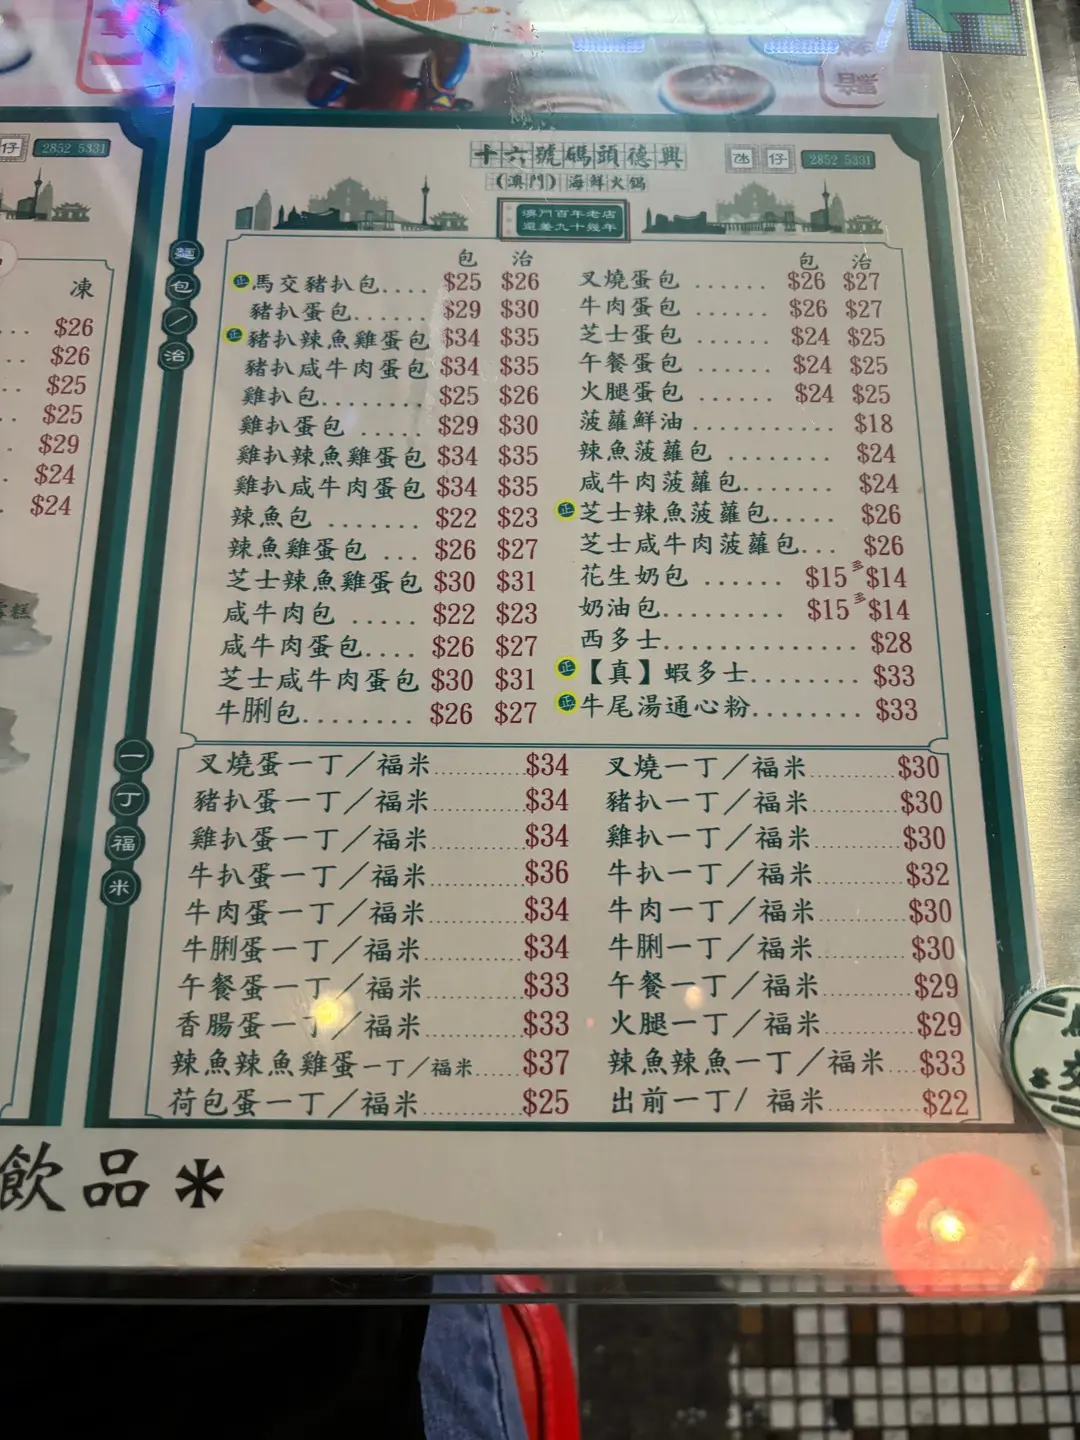 仔 2852 5331
凍
$26
$26
$25
$25
$29
$24
$24
十六號碼頭德興 氹仔 2852 5331
(澳門)海鮮火鍋
澳門百年老店
還差九十幾年
麵包/治
包 治
正 馬交豬扒包.... $25 $26
豬扒蛋包...... $29 $30
正 豬扒辣魚雞蛋包 $34 $35
豬扒咸牛肉蛋包 $34 $35
雞扒包........ $25 $26
雞扒蛋包 ..... $29 $30
雞扒辣魚雞蛋包 $34 $35
雞扒咸牛肉蛋包 $34 $35
辣魚包 ....... $22 $23
辣魚雞蛋包 ... $26 $27
芝士辣魚雞蛋包 $30 $31
咸牛肉包 ..... $22 $23
咸牛肉蛋包.... $26 $27
芝士咸牛肉蛋包 $30 $31
牛脷包........ $26 $27
包 治
叉燒蛋包 ...... $26 $27
牛肉蛋包 ...... $26 $27
芝士蛋包 ...... $24 $25
午餐蛋包 ...... $24 $25
火腿蛋包 ...... $24 $25
菠蘿鮮油 ........... $18
辣魚菠蘿包 ........ $24
咸牛肉菠蘿包....... $24
正 芝士辣魚菠蘿包..... $26
芝士咸牛肉菠蘿包... $26
花生奶包 ...... $15 多 $14
奶油包......... $15 多 $14
西多士.............. $28
正 【真】蝦多士........ $33
正 牛尾湯通心粉........ $33
一丁福米
叉燒蛋一丁/福米 $34
豬扒蛋一丁/福米 $34
雞扒蛋一丁/福米 $34
牛扒蛋一丁/福米 $36
牛肉蛋一丁/福米 $34
牛脷蛋一丁/福米 $34
午餐蛋一丁/福米 $33
香腸蛋一丁/福米 $33
辣魚辣魚雞蛋一丁/福米 $37
荷包蛋一丁/福米 $25
叉燒一丁/福米 $30
豬扒一丁/福米 $30
雞扒一丁/福米 $30
牛扒一丁/福米 $32
牛肉一丁/福米 $30
牛脷一丁/福米 $30
午餐一丁/福米 $29
火腿一丁/福米 $29
辣魚辣魚一丁/福米 $33
出前一丁/ 福米 $22
飲品*